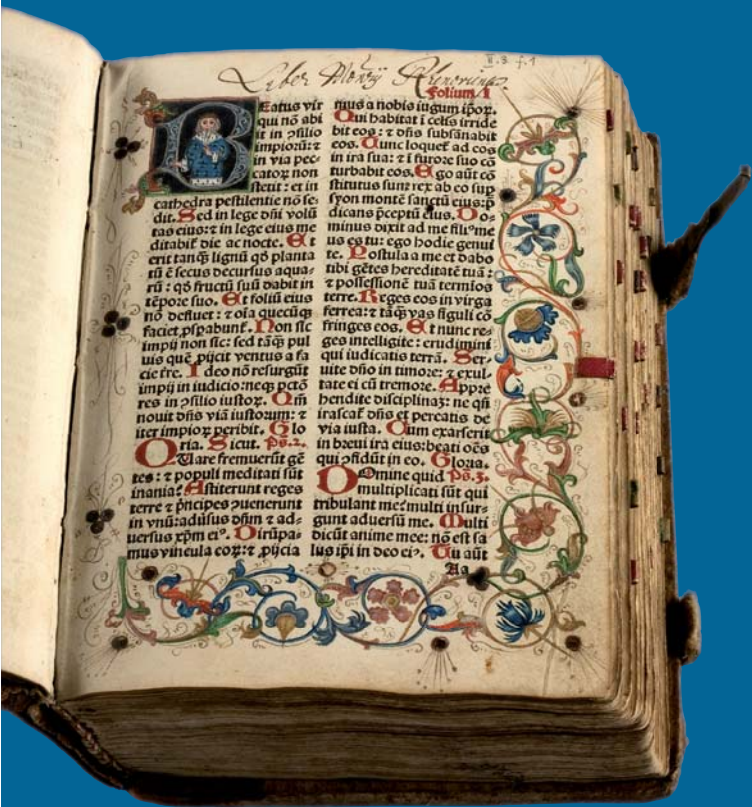 II.3 f.1
Liber Monrij
Folium 1
BEatus vir
qui nō abi
it in ꝯsilio
impioꝝ: ⁊
in via pec⸗
catoꝝ non
stetit: et in
cathedra pestilentie nō se⸗
dit. Sed in lege dn̄i volū
tas eius: ⁊ in lege eius me
ditabit᷑ die ac nocte. Et
erit tanqᷓ lignū qḋ planta
tū ē secus decursus aqua⸗
rū: qḋ fructū suū dabit in
tēpore suo. Et foliū eius
nō defluet: ⁊ oīa quecūqꝫ
faciet, ꝓsꝑabunt᷑. Non sic
impij non sic: sed tāqᷓ pul
uis quē ꝓijcit ventus a fa
cie tr̄e. Ideo nō resurgūt
impij in iudicio: neqꝫ pctō
res in ꝯsilio iustoꝝ. Qm̄
nouit dn̄s viā iustorum: ⁊
iter impioꝝ peribit. Glo
ria. Sicut. Ps. 2.
QUare fremuerūt gē
tes: ⁊ populi meditati sūt
inania? Astiterunt reges
terre ⁊ pn̄cipes ꝯuenerunt
in vnū: aduersus dn̄m ⁊ ad⸗
uersus xp̄m eiꝰ. Dirūpa⸗
mus vincula eoꝝ: ⁊ ꝓijcia
mus a nobis iugum ip̄oꝝ.
Qui habitat ī celis irride
bit eos: ⁊ dn̄s subsānabit
eos. Tunc loquet᷑ ad eos
in ira sua: ⁊ ī furore suo cō
turbabit eos. Ego aūt cō
stitutus sum rex ab eo sup
syon montē sanctū eius: p̄
dicans p̄ceptū eius. Do⸗
minus dixit ad me filiꝰ me
us es tu: ego hodie genui
te. Postula a me et dabo
tibi gētes hereditatē tuā:
⁊ possessionē tuā termīos
terre. Reges eos in virga
ferrea: ⁊ tāqᷓ vas figuli cō
fringes eos. Et nunc re⸗
ges intelligite: erudimini
qui iudicatis terrā. Ser⸗
uite dn̄o in timore: ⁊ exul⸗
tate ei cū tremore. Appre
hendite disciplinaꝫ: ne qn̄
irascat᷑ dn̄s et pereatis de
via iusta. Cum exarserit
in breui ira eius: beati oēs
qui ꝯfidūt in eo. Gloria.
DOmine quid Ps. 3.
multiplicati sūt qui
tribulant me? multi insur⸗
gunt aduersū me. Multi
dicūt anime mee: nō est sa
lus ip̄i in deo eiꝰ. Tu aūt
Aa